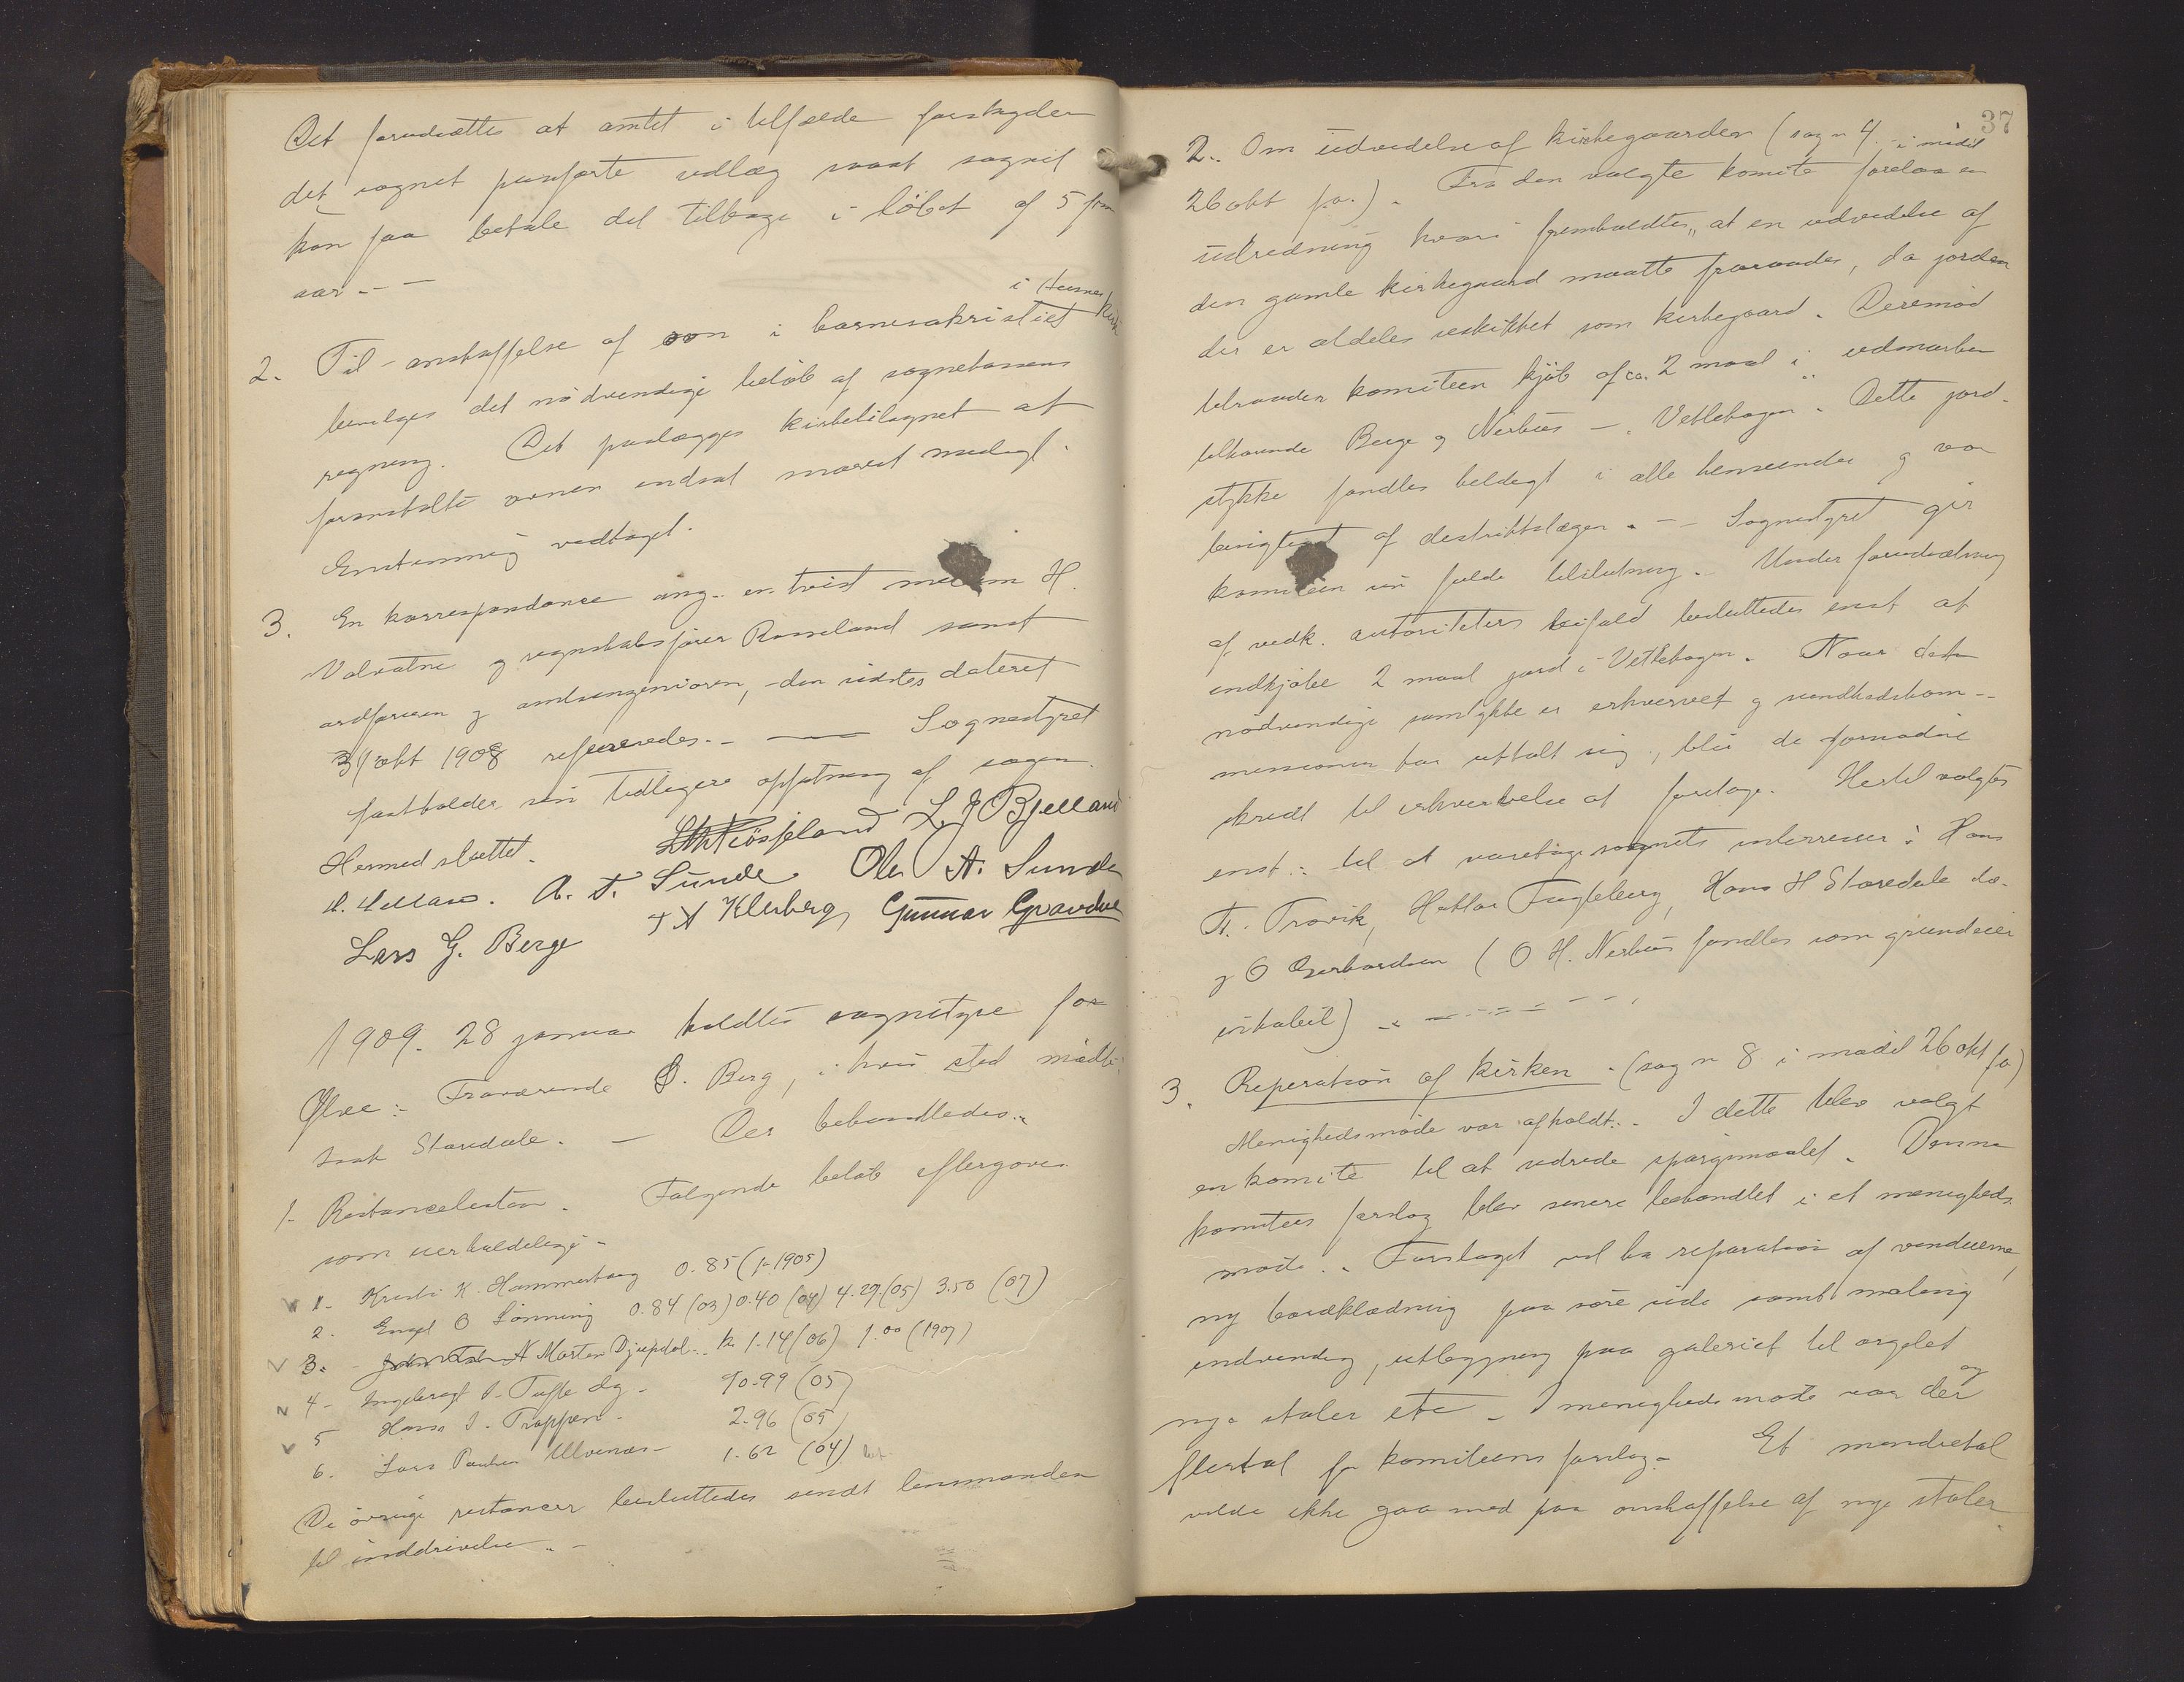 Det forudsættes at amtet i tilfælde forskyder
det sognet paaførte udlæg samt sognet
kan faa betale det tilbage i løbet af 5 fem
aar. - -
i Husnes kirke
2. Til anskaffelse af ovn i barnesakristiet
bevilges det nødvendige beløb af sognekassens
regning. Det paalægges kirketilsynet at
foranstalte ovnen indsat snarest muligt.
Enstemmig vedtaget.
3. En korrespondance ang. en tvist mellem H.
Valvatne og regnskabsfører Rosseland samt
ordføreren og amtsingeniøren, den sidstes dateret
31 okt 1908 refereredes. - — Sognestyret
fastholder sin tidligere opfatning af sagen.
Hermed sluttet. L. J. Bjelland
A. T. Sunde Ole A. Sunde
Lars G. Berge Gunnar Gravdal
1909. 28 januar holdtes sognestyre for
Ølve: Fraværende Ø. Berg, i hvis sted mødte
Isak Staredale. — Der behandledes:
1- Restancelisten. Følgende beløb eftergaves
som uerholdelige -
1- Kristi K. Hammerhaug 0.85 (1-1905)
2. Engel O Lønning 0.84 (03) 0.40 (04) 4.29 (05) 3.50 (07)
3. - A Marten Djupdal. k 1.14 (06) 1.00 (1907)
4 - Ingeborg I. Tufte dy. 10.99 (05)
5 Hans I. Trappen - 2.96 (05)
6. Lars Paulsen Ulvenæs - 1.62 (04)
De øvrige restancer besluttedes sendt lensmanden
til inddrivelse. -
37
2. Om udvidelse af kirkegaarden (sag n 4 i mødet
26 okt f.a.). Fra den valgte komite forelaa en
udredning hvori fremholdtes, at en udvidelse af
den gamle kirkegaard maatte fraraades, da jorden
der er aldeles uskikket som kirkegaard. Derimod
tilraader komiteen kjøb af ca. 2 maal i udmarken
tilhørende Berge og Nerhus - "Vetlehagen". Dette jord-
stykke fandtes heldigt i alle henseender og var
besigtiget af distriktslægen. - - Sognestyret gir
komiteen sin fulde tilslutning. Under forudsætning
af vedk. autoriteters bifald besluttedes enst at
indkjøbe 2 maal jord i Vetlehagen. Naar det
nødvendige samtykke er erhvervet og sundhedskom-
missionen har uttalt sig, blir de fornødne
skridt til erhvervelse at foretage. Hertil valgtes
enst: til at varetage sognets interesser: Hans
T. Trovik, Haktor Fugleberg, Hans H Staredale
og O Gerhardsen (O H. Nerhus fandtes som grundeier
inhabil) - - - -
3. Reperation af kirken. (sag n 8 i mødet 26 okt f a)
Menighedsmøde var afholdt. I dette blev valgt
en komite til at udrede spørgsmaalet. Denne
komitees forslag blev senere behandlet i et menigheds
møde. Forslaget vil ha reparation af vinduerne,
ny bordklædning paa søre side samt maling
indvendig, utbygning paa galeriet til orgelet
nye stoler etc - I menighedsmøde var der og
flertal for komiteens forslag - Et mindretal
vilde ikke gaa med paa anskaffelse af nye stoler